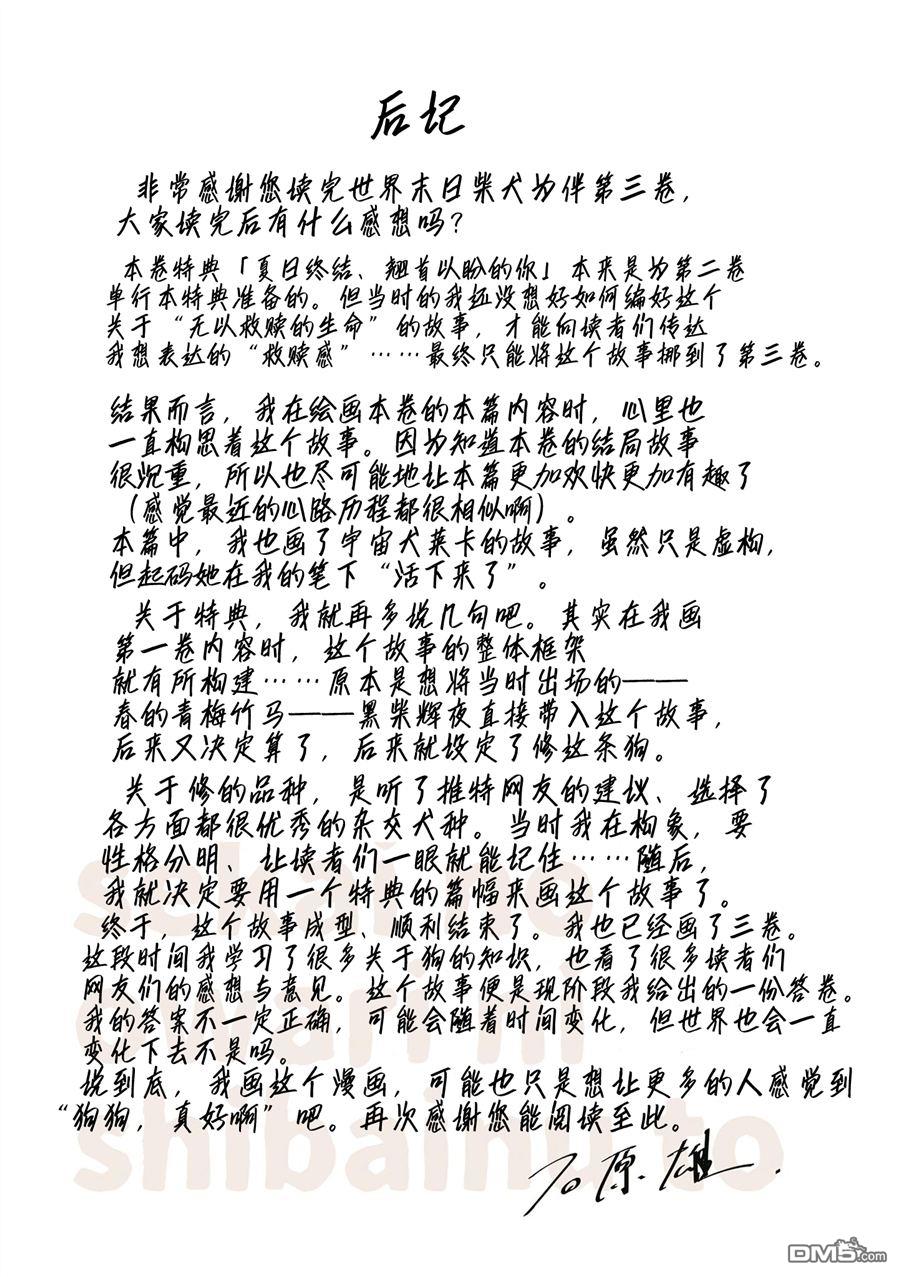 后记
非常感谢您读完世界末日柴犬为伴第三卷，
大家读完后有什么感想吗？
本卷特典「夏日终结、翘首以盼的你」本来是为第二卷
单行本特典准备的。但当时的我还没想好如何编好这个
关于“无以救赎的生命”的故事，才能向读者们传达
我想表达的“救赎感”……最终只能将这个故事挪到了第三卷。
结果而言，我在绘画本卷的本篇内容时，心里也
一直构思着这个故事。因为知道本卷的结局故事
很沉重，所以也尽可能地让本篇更加欢快更加有趣了
（感觉最近的心路历程都很相似啊）。
本篇中，我也画了宇宙犬莱卡的故事，虽然只是虚构，
但起码她在我的笔下“活下来了”。
关于特典，我就再多说几句吧。其实在我画
第一卷内容时，这个故事的整体框架
就有所构建……原本是想将当时出场的——
春的青梅竹马——黑柴辉夜直接带入这个故事，
后来又决定算了，后来就设定了修这条狗。
关于修的品种，是听了推特网友的建议、选择了
各方面都很优秀的杂交犬种。当时我在构象，要
性格分明、让读者们一眼就能记住……随后，
我就决定要用一个特典的篇幅来画这个故事了。
终于，这个故事成型、顺利结束了。我也已经画了三卷。
这段时间我学习了很多关于狗的知识，也看了很多读者们
网友们的感想与意见。这个故事便是现阶段我给出的一份答卷。
我的答案不一定正确，可能会随着时间变化，但世界也会一直
变化下去不是吗。
说到底，我画这个漫画，可能也只是想让更多的人感觉到
“狗狗，真好啊”吧。再次感谢您能阅读至此。
石原雄
sekai no
owari ni
shibainu to
DM5.com